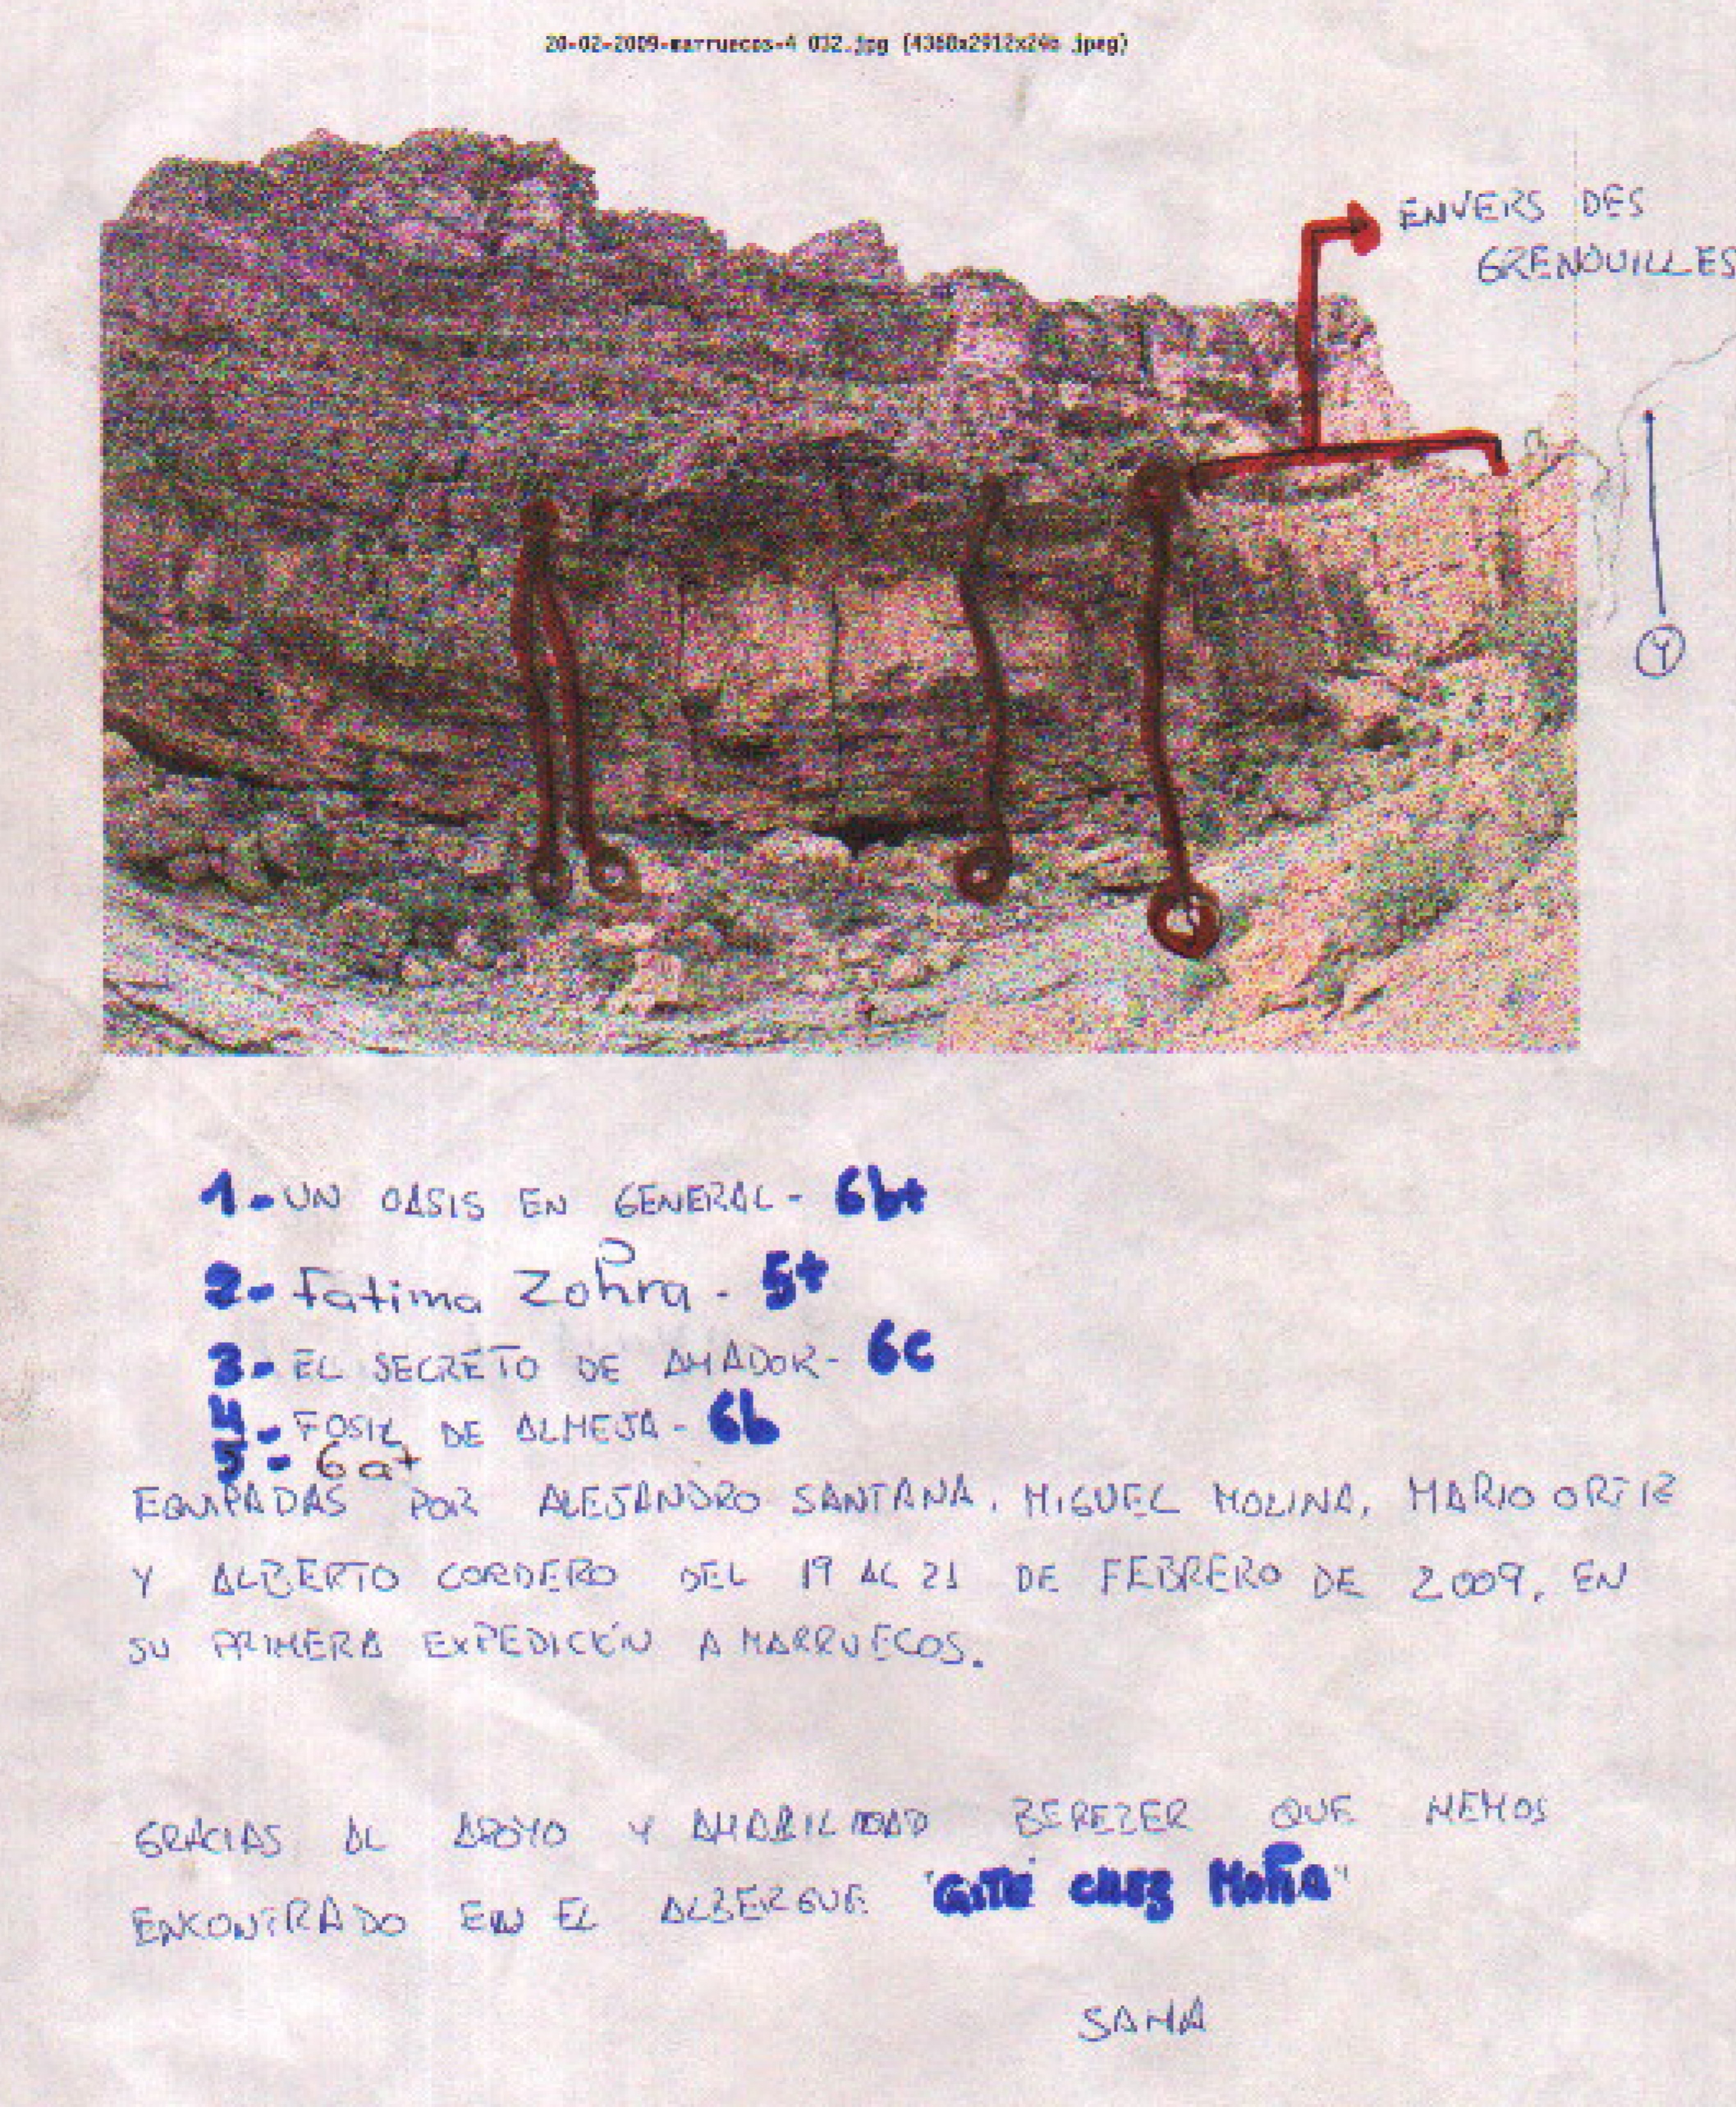 20-02-2009-marruecos-4 032.jpg (4368x2912x24b jpeg)
ENVERS DES
GRENOUILLES
1- UN OASIS EN GENERAL - 6b+
2- Fatima Zohra - 5+
3- EL SECRETO DE AMADOR - 6c
4- FOSIL DE ALMEJA - 6b
5- 6a+
EQUIPADAS POR ALEJANDRO SANTANA, MIGUEL MOLINA, MARIO ORTIZ
Y ALBERTO CORDERO DEL 19 AL 21 DE FEBRERO DE 2009, EN
SU PRIMERA EXPEDICIÓN A MARRUECOS.
GRACIAS AL APOYO Y AMABILIDAD BEREBER QUE HEMOS
ENCONTRADO EN EL ALBERGUE "GITE CHEZ MOHA"